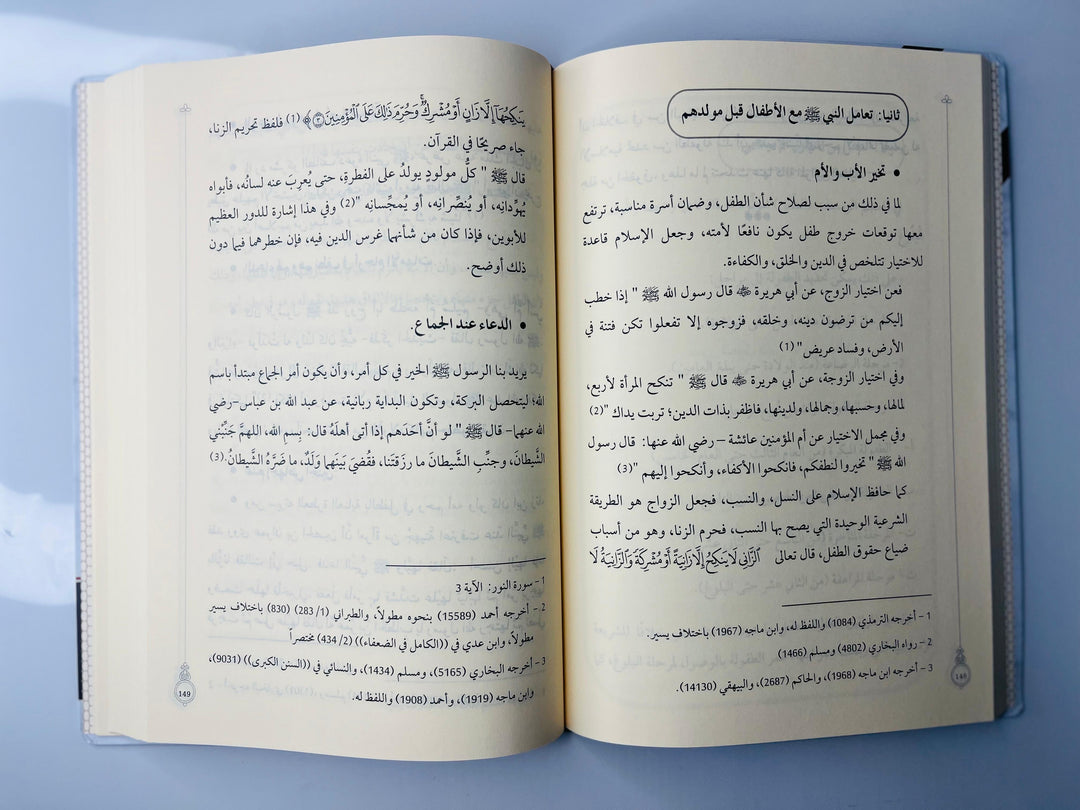 ثانيا: تعامل النبي ﷺ مع الأطفال قبل مولدهم
• تخير الأب والأم
لما في ذلك من سبب لصلاح شأن الطفل، وضمان أسرة مناسبة، ترتفع
معها توقعات خروج طفل يكون نافعًا لأمته، وجعل الإسلام قاعدة
للاختيار تتلخص في الدين والخلق، والكفاءة.
فعن اختيار الزوج، عن أبي هريرة ﵁ قال رسول الله ﷺ " إذا خطب
إليكم من ترضون دينه، وخلقه، فزوجوه إلا تفعلوا تكن فتنة في
الأرض، وفساد عريض" (1)
وفي اختيار الزوجة، عن أبي هريرة ﵁ قال ﷺ " تنكح المرأة لأربع،
لمالها، وحسبها، وجمالها، ولدينها، فاظفر بذات الدين؛ تربت يداك "(2)
وفي مجمل الاختيار عن أم المؤمنين عائشة – رضي الله عنها: قال رسول
الله ﷺ " تخيروا لنطفكم، فانكحوا الأكفاء، وأنكحوا إليهم "(3)
كما حافظ الإسلام على النسل، والنسب، فجعل الزواج هو الطريقة
الشرعية الوحيدة التي يصح بها النسب، فحرم الزنا، وهو من أسباب
ضياع حقوق الطفل، قال تعالى ٱلزَّانِي لَا يَنكِحُ إِلَّا زَانِيَةً أَوْ مُشْرِكَةً وَٱلزَّانِيَةُ لَا
1 – أخرجه الترمذي (1084) واللفظ له، وابن ماجه (1967) باختلاف يسير.
2 – رواه البخاري (4802) ومسلم (1466)
3 – أخرجه ابن ماجه (1968)، والحاكم (2687)، والبيهقي (14130).
148
يَنكِحُهَآ إِلَّا زَانٍ أَوْ مُشْرِكٌ ۚ وَحُرِّمَ ذَٰلِكَ عَلَى ٱلْمُؤْمِنِينَ ٣ ﴾ (1) فلفظ تحريم الزنا،
جاء صريحًا في القرآن.
قال ﷺ " كلُّ مولودٍ يولدُ على الفطرةِ، حتى يُعرِبَ عنه لسانُه، فأبواه
يهوِّدانِه، أو يُنصِّرانِه، أو يُمجِّسانِه "(2) وفي هذا إشارة للدور العظيم
للأبوين، فإذا كان من شأنهما غرس الدين فيه، فإن خطرهما فيما دون
ذلك أوضح.
• الدعاء عند الجماع.
يريد بنا الرسول ﷺ الخير في كل أمر، وأن يكون أمر الجماع مبتدأ باسم
الله؛ ليتحصل البركة، وتكون البداية ربانية، عن عبد الله بن عباس–رضي
الله عنهما– قال ﷺ " لو أنَّ أحَدَهم إذا أتى أهلَهُ قال: بِسم اللهِ، اللهمَّ جَنِّبْني
الشَّيطانَ، وجنِّبِ الشَّيطانَ ما رزَقتَنا، فقُضيَ بَينَهما وَلَدٌ، ما ضَرَّهُ الشَّيطانُ.(3)
1 – سورة النور: الآية 3
2 – أخرجه أحمد (15589) بنحوه مطولاً، والطبراني (283/1) (830) باختلاف يسير
مطولاً، وابن عدي في ((الكامل في الضعفاء)) (434/2) مختصراً
3 – أخرجه البخاري (5165)، ومسلم (1434)، والنسائي في ((السنن الكبرى)) (9031)،
وابن ماجه (1919)، وأحمد (1908) واللفظ له.
149